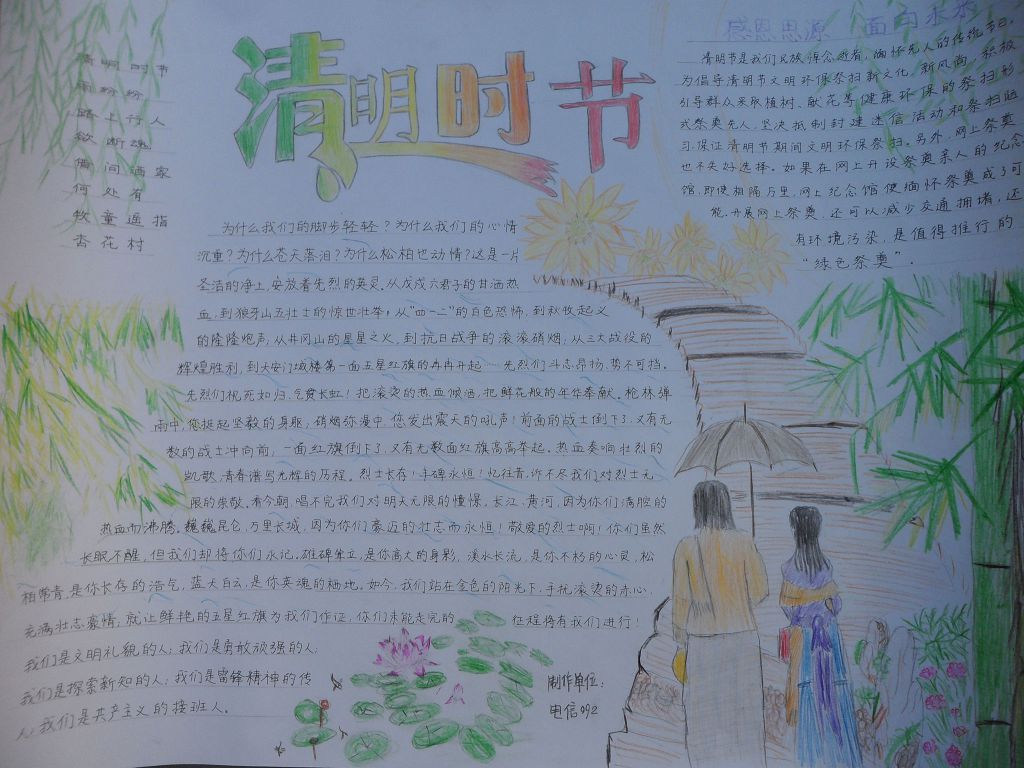 清明时节
清明时节
雨纷纷
路上行人
欲断魂
借问酒家
何处有
牧童遥指
杏花村
感恩思源 面向未来
清明节是我们民族悼念逝者,缅怀先人的传统节日。
为倡导清明节文明环保祭扫新文化、新风尚,积极
引导群众采取植树、献花等健康环保的祭扫形
式祭奠先人,坚决抵制封建迷信活动和祭扫陋
习,保证清明节期间文明环保祭扫。另外,网上祭奠
也不失好选择。如果在网上开设祭奠亲人的纪念
馆,即使相隔万里,网上纪念馆使缅怀祭奠成了可
能,开展网上祭奠,还可以减少交通拥堵,还
有环境污染,是值得推行的
“绿色祭奠”。
为什么我们的脚步轻轻?为什么我们的心情
沉重?为什么苍天落泪?为什么松柏也动情?这是一片
圣洁的净土,安放着先烈的英灵。从戊戌六君子的甘洒热
血,到狼牙山五壮士的惊世壮举,从“四一二”的白色恐怖,到秋收起义
的隆隆炮声,从井冈山的星星之火,到抗日战争的滚滚硝烟;从三大战役的
辉煌胜利,到天安门城楼第一面五星红旗的冉冉升起……先烈们斗志昂扬,势不可挡。
先烈们视死如归,气贯长虹!把滚烫的热血倾洒,把鲜花般的年华奉献。枪林弹
雨中,您挺起坚毅的身躯,硝烟弥漫中,您发出震天的吼声!前面的战士倒下了,又有无
数的战士冲向前,一面红旗倒下了,又有无数面红旗高高举起。热血奏响壮烈的
凯歌,青春谱写光辉的历程。烈士长存!丰碑永恒!忆往昔,诉不尽我们对烈士无
限的崇敬。看今朝,唱不完我们对明天无限的憧憬。长江、黄河,因为你们满腔的
热血而沸腾。巍巍昆仑,万里长城,因为你们豪迈的壮志而永恒!敬爱的烈士啊!你们虽然
长眠不醒,但我们却将你们永记。雄碑耸立,是你高大的身影,溪水长流,是你不朽的心灵,松
柏常青,是你长存的浩气,蓝天白云,是你英魂的栖地。如今,我们站在金色的阳光下,手扶滚烫的赤心,
充满壮志豪情,就让鲜艳的五星红旗为我们作证,你们未能走完的 征程将有我们进行!
我们是文明礼貌的人;我们是勇敢顽强的人;
我们是探索新知的人;我们是雷锋精神的传
人;我们是共产主义的接班人。
制作单位:
电信092